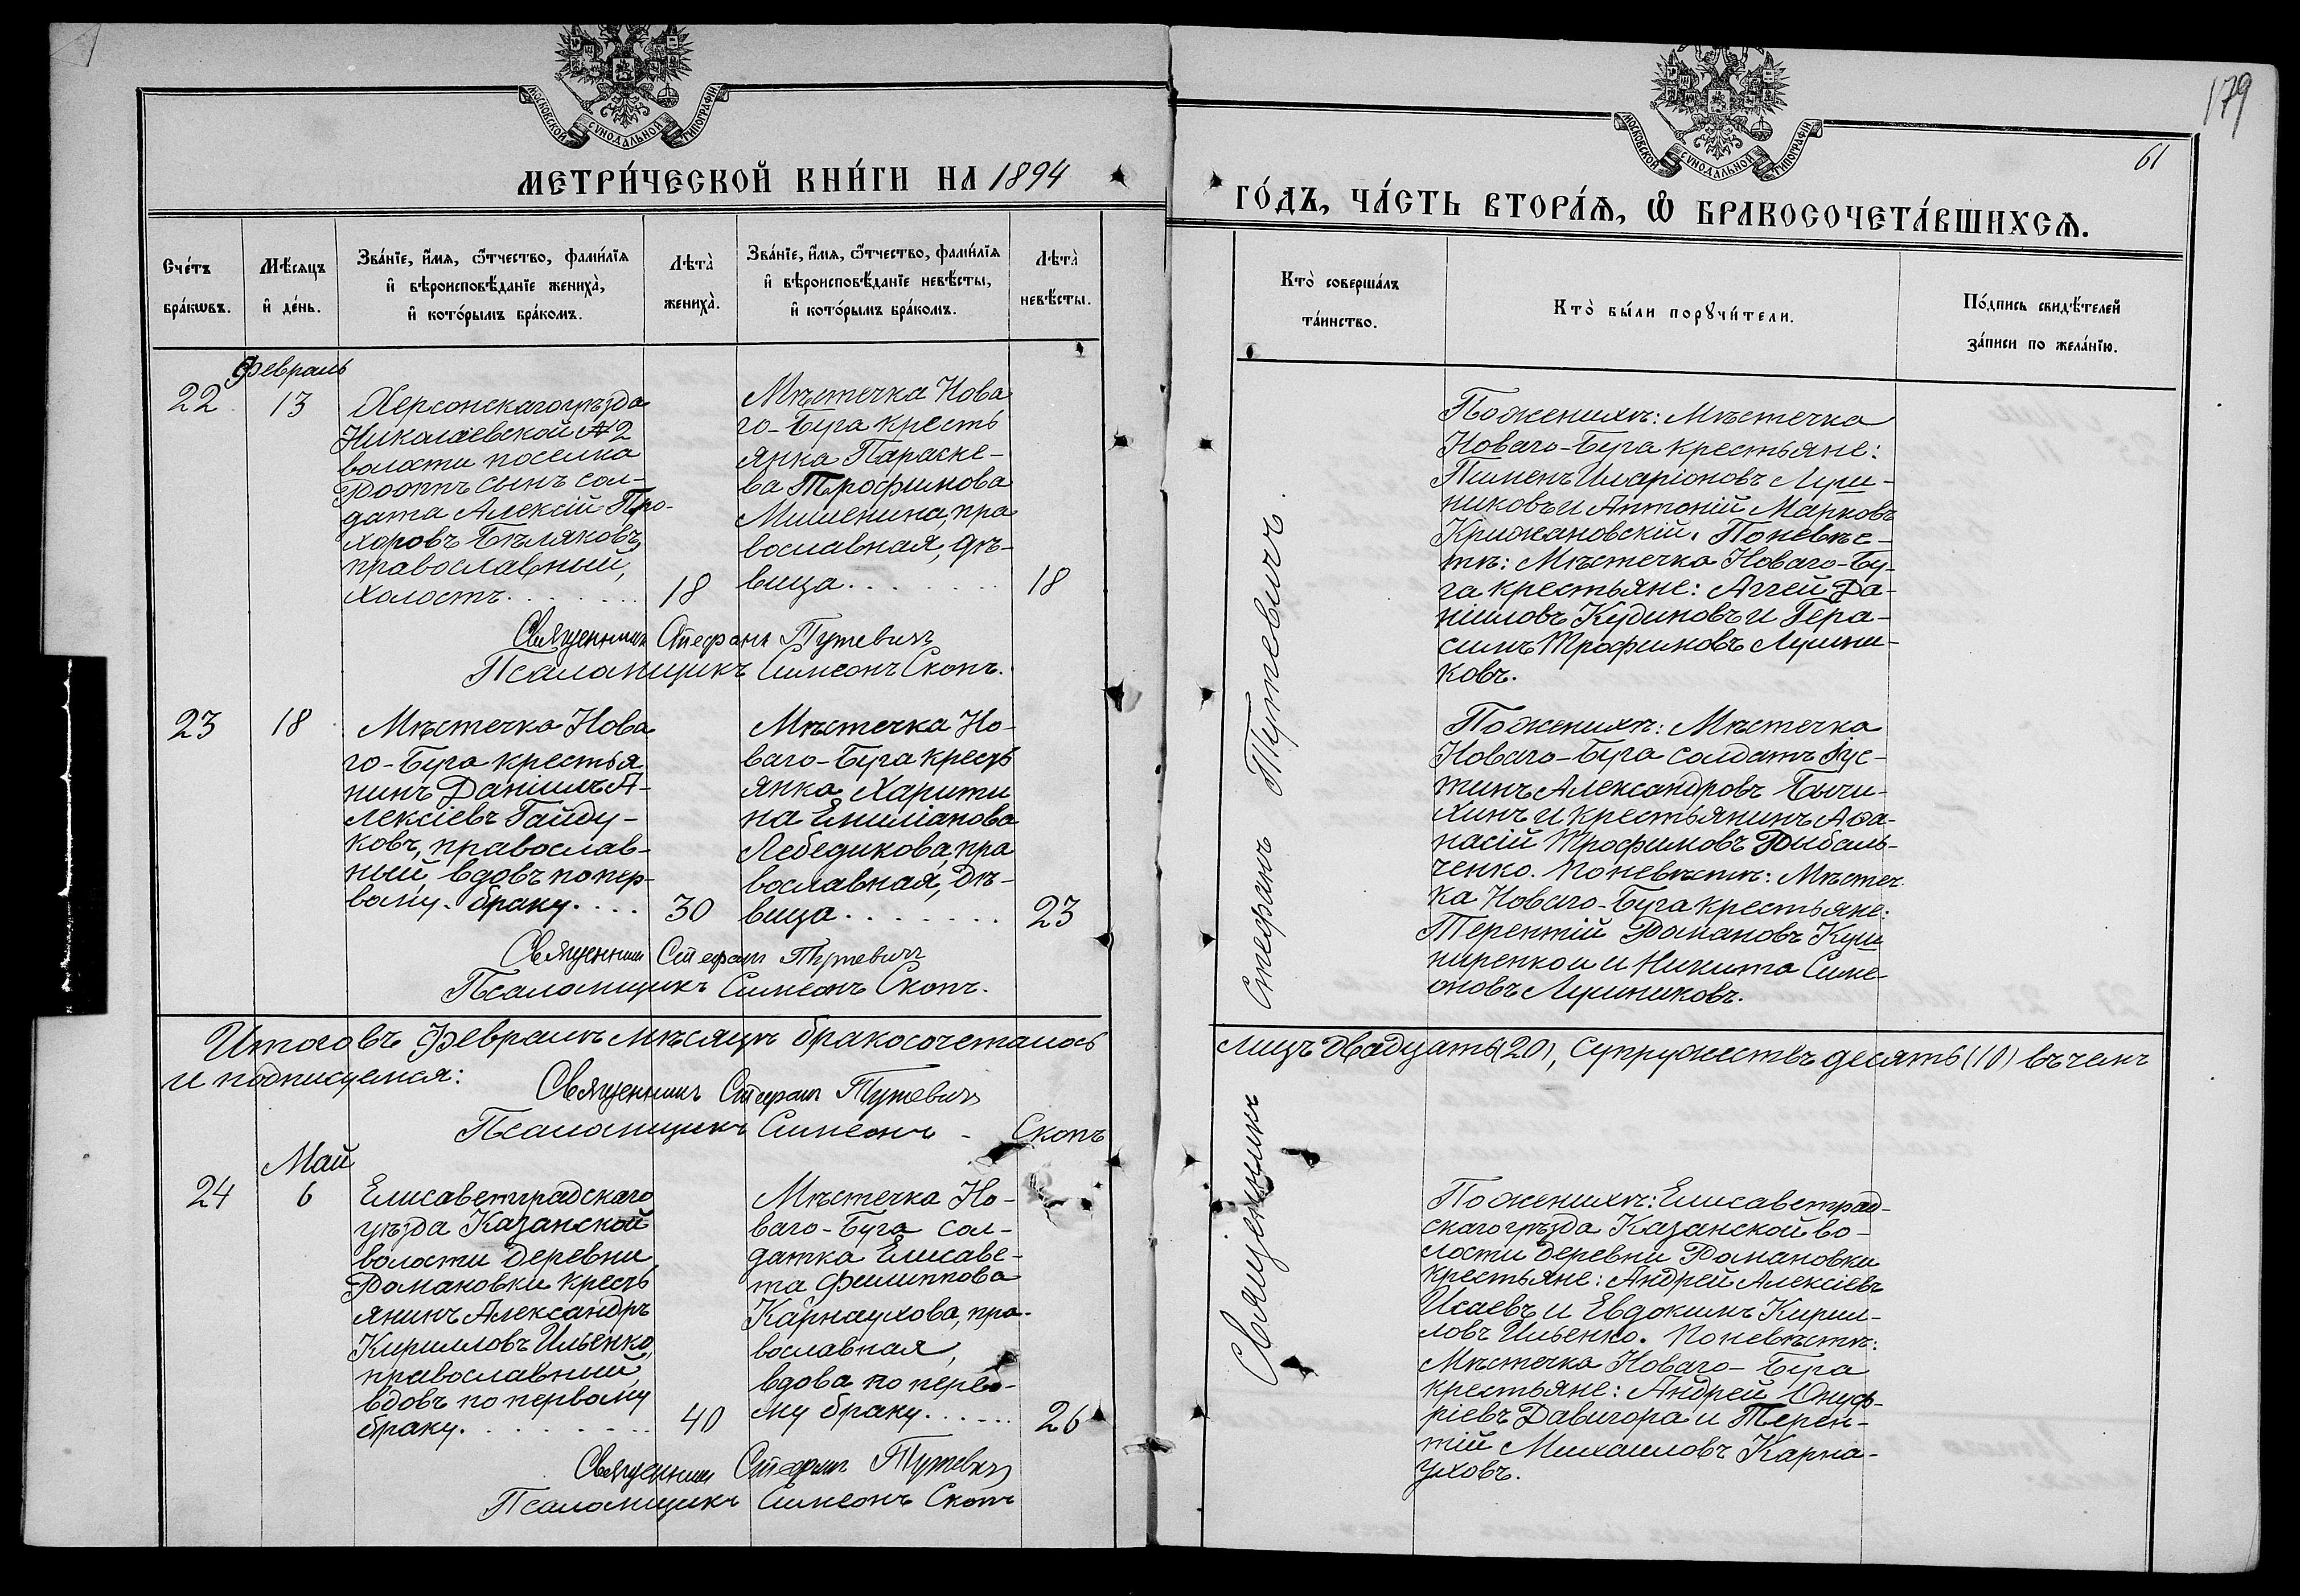 179
61
МОСКОВСКОЙ СѴНОДАЛЬНОЙ ТИПОГРАФІИ
МОСКОВСКОЙ СѴНОДАЛЬНОЙ ТИПОГРАФІИ
МЕТРИ́ЧЕСКОЙ КНИ́ГИ НА 1894
ГО́ДЪ, ЧА́СТЬ ВТОРА́Ѧ, Ѽ БРАКОСОЧЕТА́ВШИХСѦ.
Сче́тъ бра́кѡвъ.
Мѣ́сѧцъ и҆ де́нь.
Зва́нїе, и҆́мѧ, ѻ҆́тчество, фами́лїѧ
и҆ вѣроисповѣ́данїе жениха̀,
и҆ кото́рымъ бра́комъ.
Лѣта̀ жениха̀.
Зва́нїе, и҆́мѧ, ѻ҆́тчество, фами́лїѧ
и҆ вѣроисповѣ́данїе невѣ́сты,
и҆ кото́рымъ бра́комъ.
Лѣта̀ невѣ́сты.
Кто̀ соверша́лъ
та́инство.
Кто̀ бы́ли порꙋчи́тели.
По́дпись свидѣ́телей
за́писи по жела́нїю.
Февраль
22
13
Херсонскаго уѣзда
Николаевской № 2
волости поселка
сынъ сол-
дата Алексій Про-
хоровъ Бѣляковъ,
православный,
холостъ. . . . . . .
18
Мѣстечка Нова
го-Буга кресть
янка Параске-
ва Трофимова
Мишенина, пра
вославная, дѣ-
вица. . . . . . .
18
Священникъ Стефанъ Тутевичъ
Псаломщикъ Симеонъ Скопъ.
По женихѣ: Мѣстечка
Новаго-Буга крестьяне:
Пименъ Иларіоновъ Луш-
никовъ и Антоній Марковъ
Крижановскій. По невѣс-
тѣ: Мѣстечка Новаго-Бу-
га крестьяне: Аггей Да-
ніиловъ Кудиновъ и Гера-
симъ Трофимовъ Лушни-
ковъ.
23
18
Мѣстечка Нова
го-Буга крестья
нинъ Даніилъ А-
лексіевъ Гайду-
ковъ, православ-
ный, вдовъ по пер-
вому браку. . . .
30
Мѣстечка Но-
ваго-Буга кресть
янка Харити
на Емиліанова
Лебедикова, пра
вославная, дѣ-
вица. . . . . . . .
23
Священникъ Стефанъ Тутевичъ
Псаломщикъ Симеонъ Скопъ.
По женихѣ: Мѣстечка
Новаго-Буга солдатъ Іус-
тинъ Александровъ Бычи-
хинъ и крестьянинъ Аѳа-
насій Трофимовъ Рыбаль-
ченко. По невѣстѣ: Мѣстеч
ка Новаго-Буга крестьяне:
Терентій Романовъ Куш
ниренко и и Никита Симе-
оновъ Лушниковъ.
Священникъ Стефанъ Тутевичъ.
Итого въ Февралѣ мѣсяцѣ бракосочеталось лицъ двадцать (20), супружествъ десять (10) въ чемъ
и подписуемся:
Священникъ Стефанъ Тутевичъ
Псаломщикъ Симеонъ - Скопъ
Май
24
6
Елисаветградскаго
уѣзда Казанской
волости деревни
Романовки кресть
янинъ Александръ
Кирилловъ Ильенко,
православный,
вдовъ по первому
браку. . . . . . . .
40
Мѣстечка Но-
ваго-Буга сол-
датка Елисаве-
та Филиппова
Карнаухова, пра-
вославная,
вдова по перво-
му браку. . . . . .
26
Священникъ Стефанъ Тутевичъ
Псаломщикъ Симеонъ Скопъ
По женихѣ: Елисаветград-
скаго уѣзда Казанской во-
лости деревни Романовки
крестьяне: Андрей Алексіевъ
Исаевъ и Евдокимъ Кирил-
ловъ Ильенко. По невѣстѣ:
Мѣстечка Новаго-Буга
крестьяне: Андрей Онуф-
ріевъ Давигора и Терен-
тій Михаиловъ Карна-
уховъ.